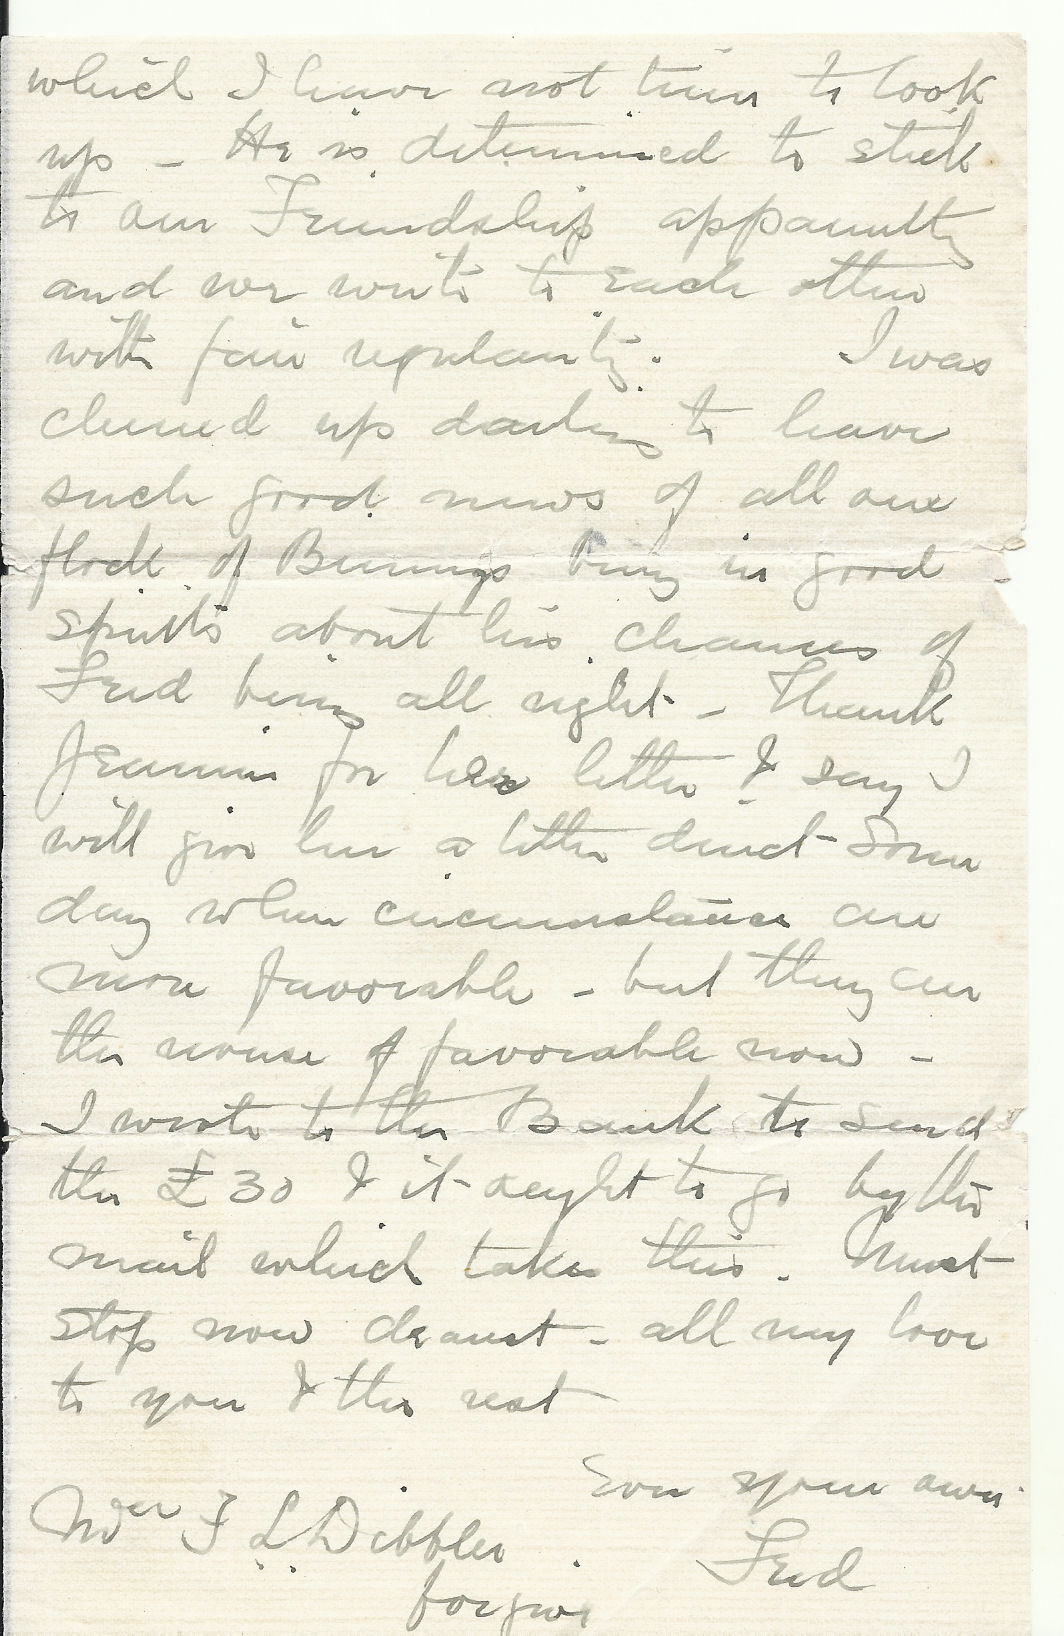 which I have not time to look
up - He is determined to stick
to our Friendship apparently
and we write to each other
with fair regularity. I was
cheered up darling to have
such good news of all our
flock of Bunnys being in good
spirits about his chances of
Fred being all right - Thank
Jeannie for her letter & say I
will give her a letter direct some
day when circumstances are
more favorable - but they are
the reverse of favorable now -
I wrote to the Bank to send
the £30 & it ought to go by the
mail which takes this. Must
stop now dearest - all my love
to you & the rest
Ever your own
Mrs F L Dibblee
Fred
forgive